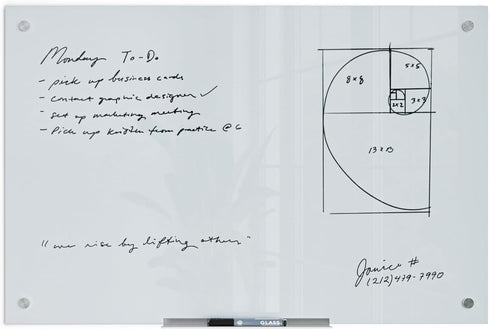 Monday To-Do
- pick up business cards
- contact graphic designer ✓
- set up marketing meeting
- Pick up Kristin from practice @ 6
8 x 8
5 x 5
2x2
3 x 3
13 x 13
"we rise by lifting others"
Janice #
(212) 479-7990
GLASS